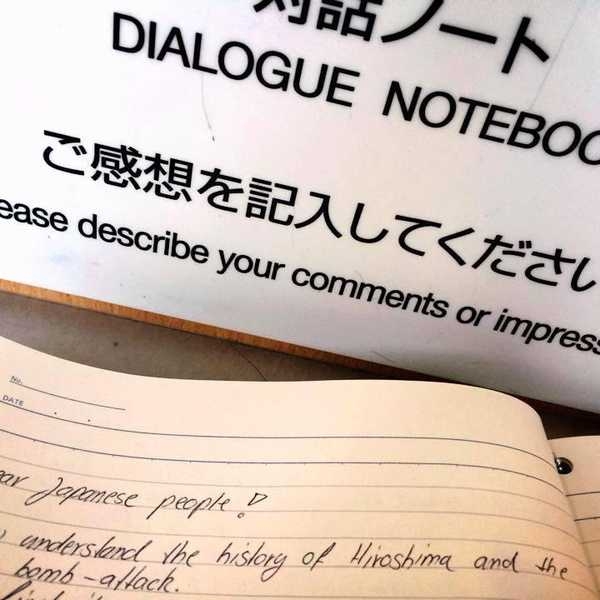 対話ノート
DIALOGUE NOTEBOO
ご感想を記入してください
ease describe your comments or impress
No.
DATE
ear Japanese people!
understand the history of Hiroshima and the
bomb-attack.